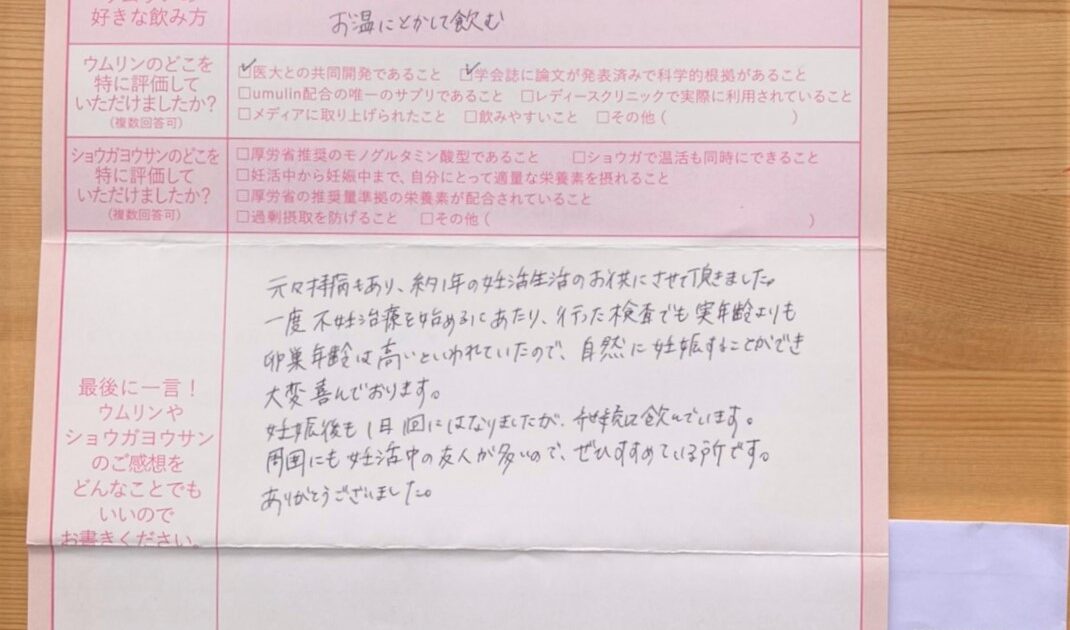 好きな飲み方
お湯にとかして飲む
ウムリンのどこを
特に評価して
いただけましたか?
(複数回答可)
☑医大との共同開発であること ☑学会誌に論文が発表済みで科学的根拠があること
□umulin配合の唯一のサプリであること □レディースクリニックで実際に利用されていること
□メディアに取り上げられたこと □飲みやすいこと □その他( )
ショウガヨウサンのどこを
特に評価して
いただけましたか?
(複数回答可)
□厚労省推奨のモノグルタミン酸型であること □ショウガで温活も同時にできること
□妊活中から妊娠中まで、自分にとって適量な栄養素を摂れること
□厚労省の推奨量準拠の栄養素が配合されていること
□過剰摂取を防げること □その他( )
最後に一言!
ウムリンや
ショウガヨウサン
のご感想を
どんなことでも
いいので
お書きください。
元々持病もあり、約1年の妊活生活のお供にさせて頂きました。
一度不妊治療を始めるにあたり、行った検査でも実年齢よりも
卵巣年齢は高いといわれていたので、自然に妊娠することができ
大変喜んでおります。
妊娠後も1日1回にはなりましたが、継続して飲んでいます。
周囲にも妊活中の友人が多いので、ぜひすすめている所です。
ありがとうございました。